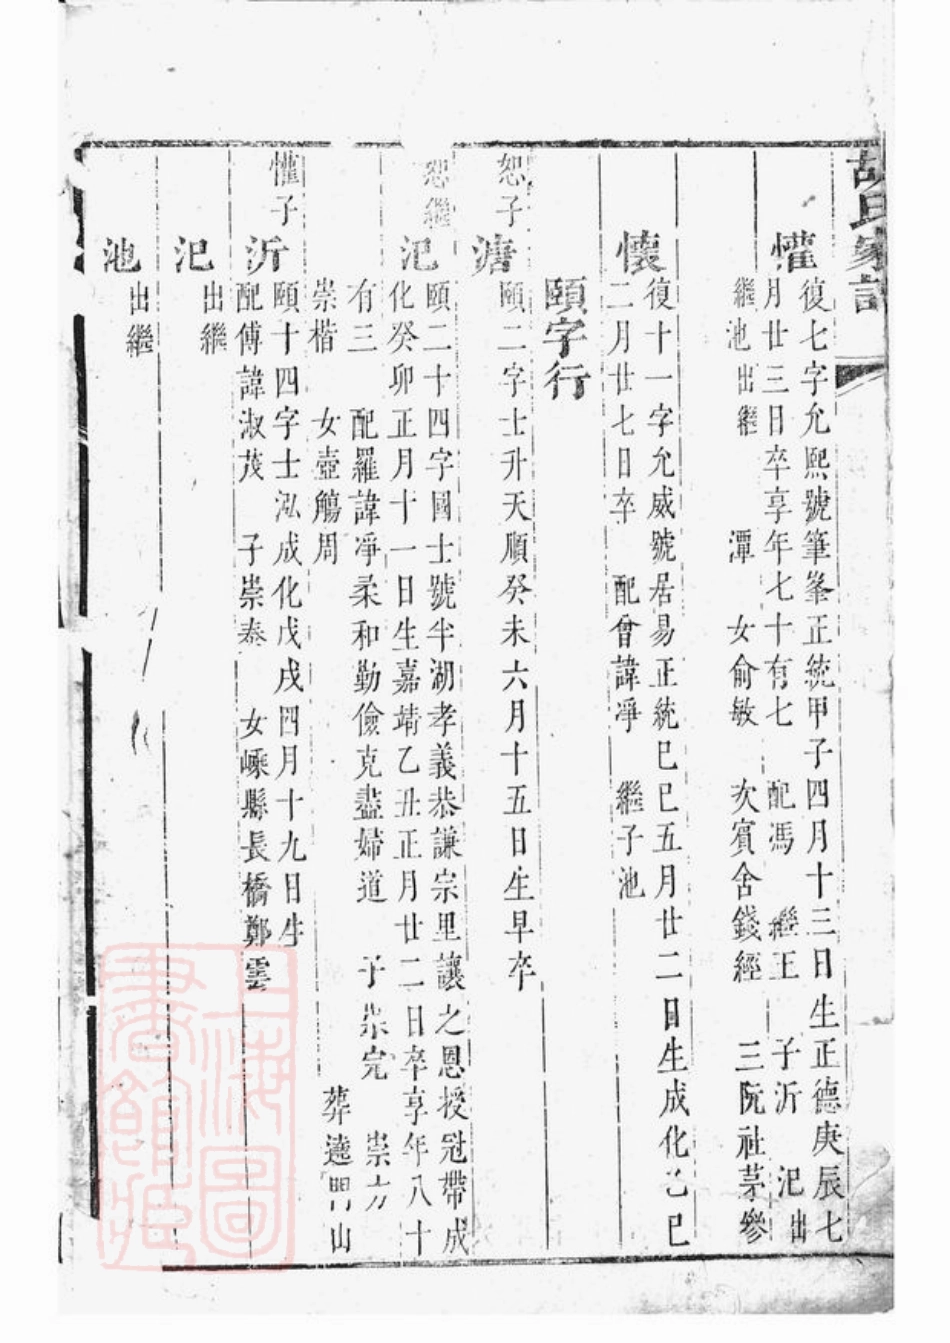 胡氏家譜
懽
復七字允熙號筆峯正統甲子四月十三日生正德庚辰七
月廿三日卒享年七十有七 配馮 繼王 子沂 汜出
繼池出繼 潭 女俞敏 次賓舍錢經 三阮社茅參
懷
復十一字允威號居易正統已巳五月廿二日生成化已巳
二月廿七日卒 配曾諱淨 繼子池
頤字行
恕子
溏
頤二字士升天順癸未六月十五日生早卒
恕繼
汜
頤二十四字國士號半湖孝義恭謙宗里讓之恩授冠帶成
化癸卯正月十一日生嘉靖乙丑正月廿二日卒享年八十
有三 配羅諱淨柔和勤儉克盡婦道 子崇完 崇方
崇楷 女壺觴周 葬遶門山
懽子
沂
頤十四字士泓成化戊戌四月十九日生
配傅諱淑茂 子崇泰 女嵊縣長橋鄭雲
汜
出繼
池
出繼
上海圖書館藏